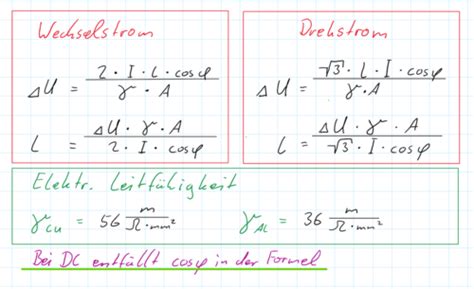 Wechselstrom
ΔU = 2 · I · L · cosφ / γ · A
L = ΔU · γ · A / 2 · I · cosφ
Drehstrom
ΔU = √3 · L · I · cosφ / γ · A
L = ΔU · γ · A / √3 · I · cosφ
Elektr. Leitfähigkeit
γCu = 56 m / Ω · mm² γAL = 36 m / Ω · mm²
Bei DC entfällt cosφ in der Formel